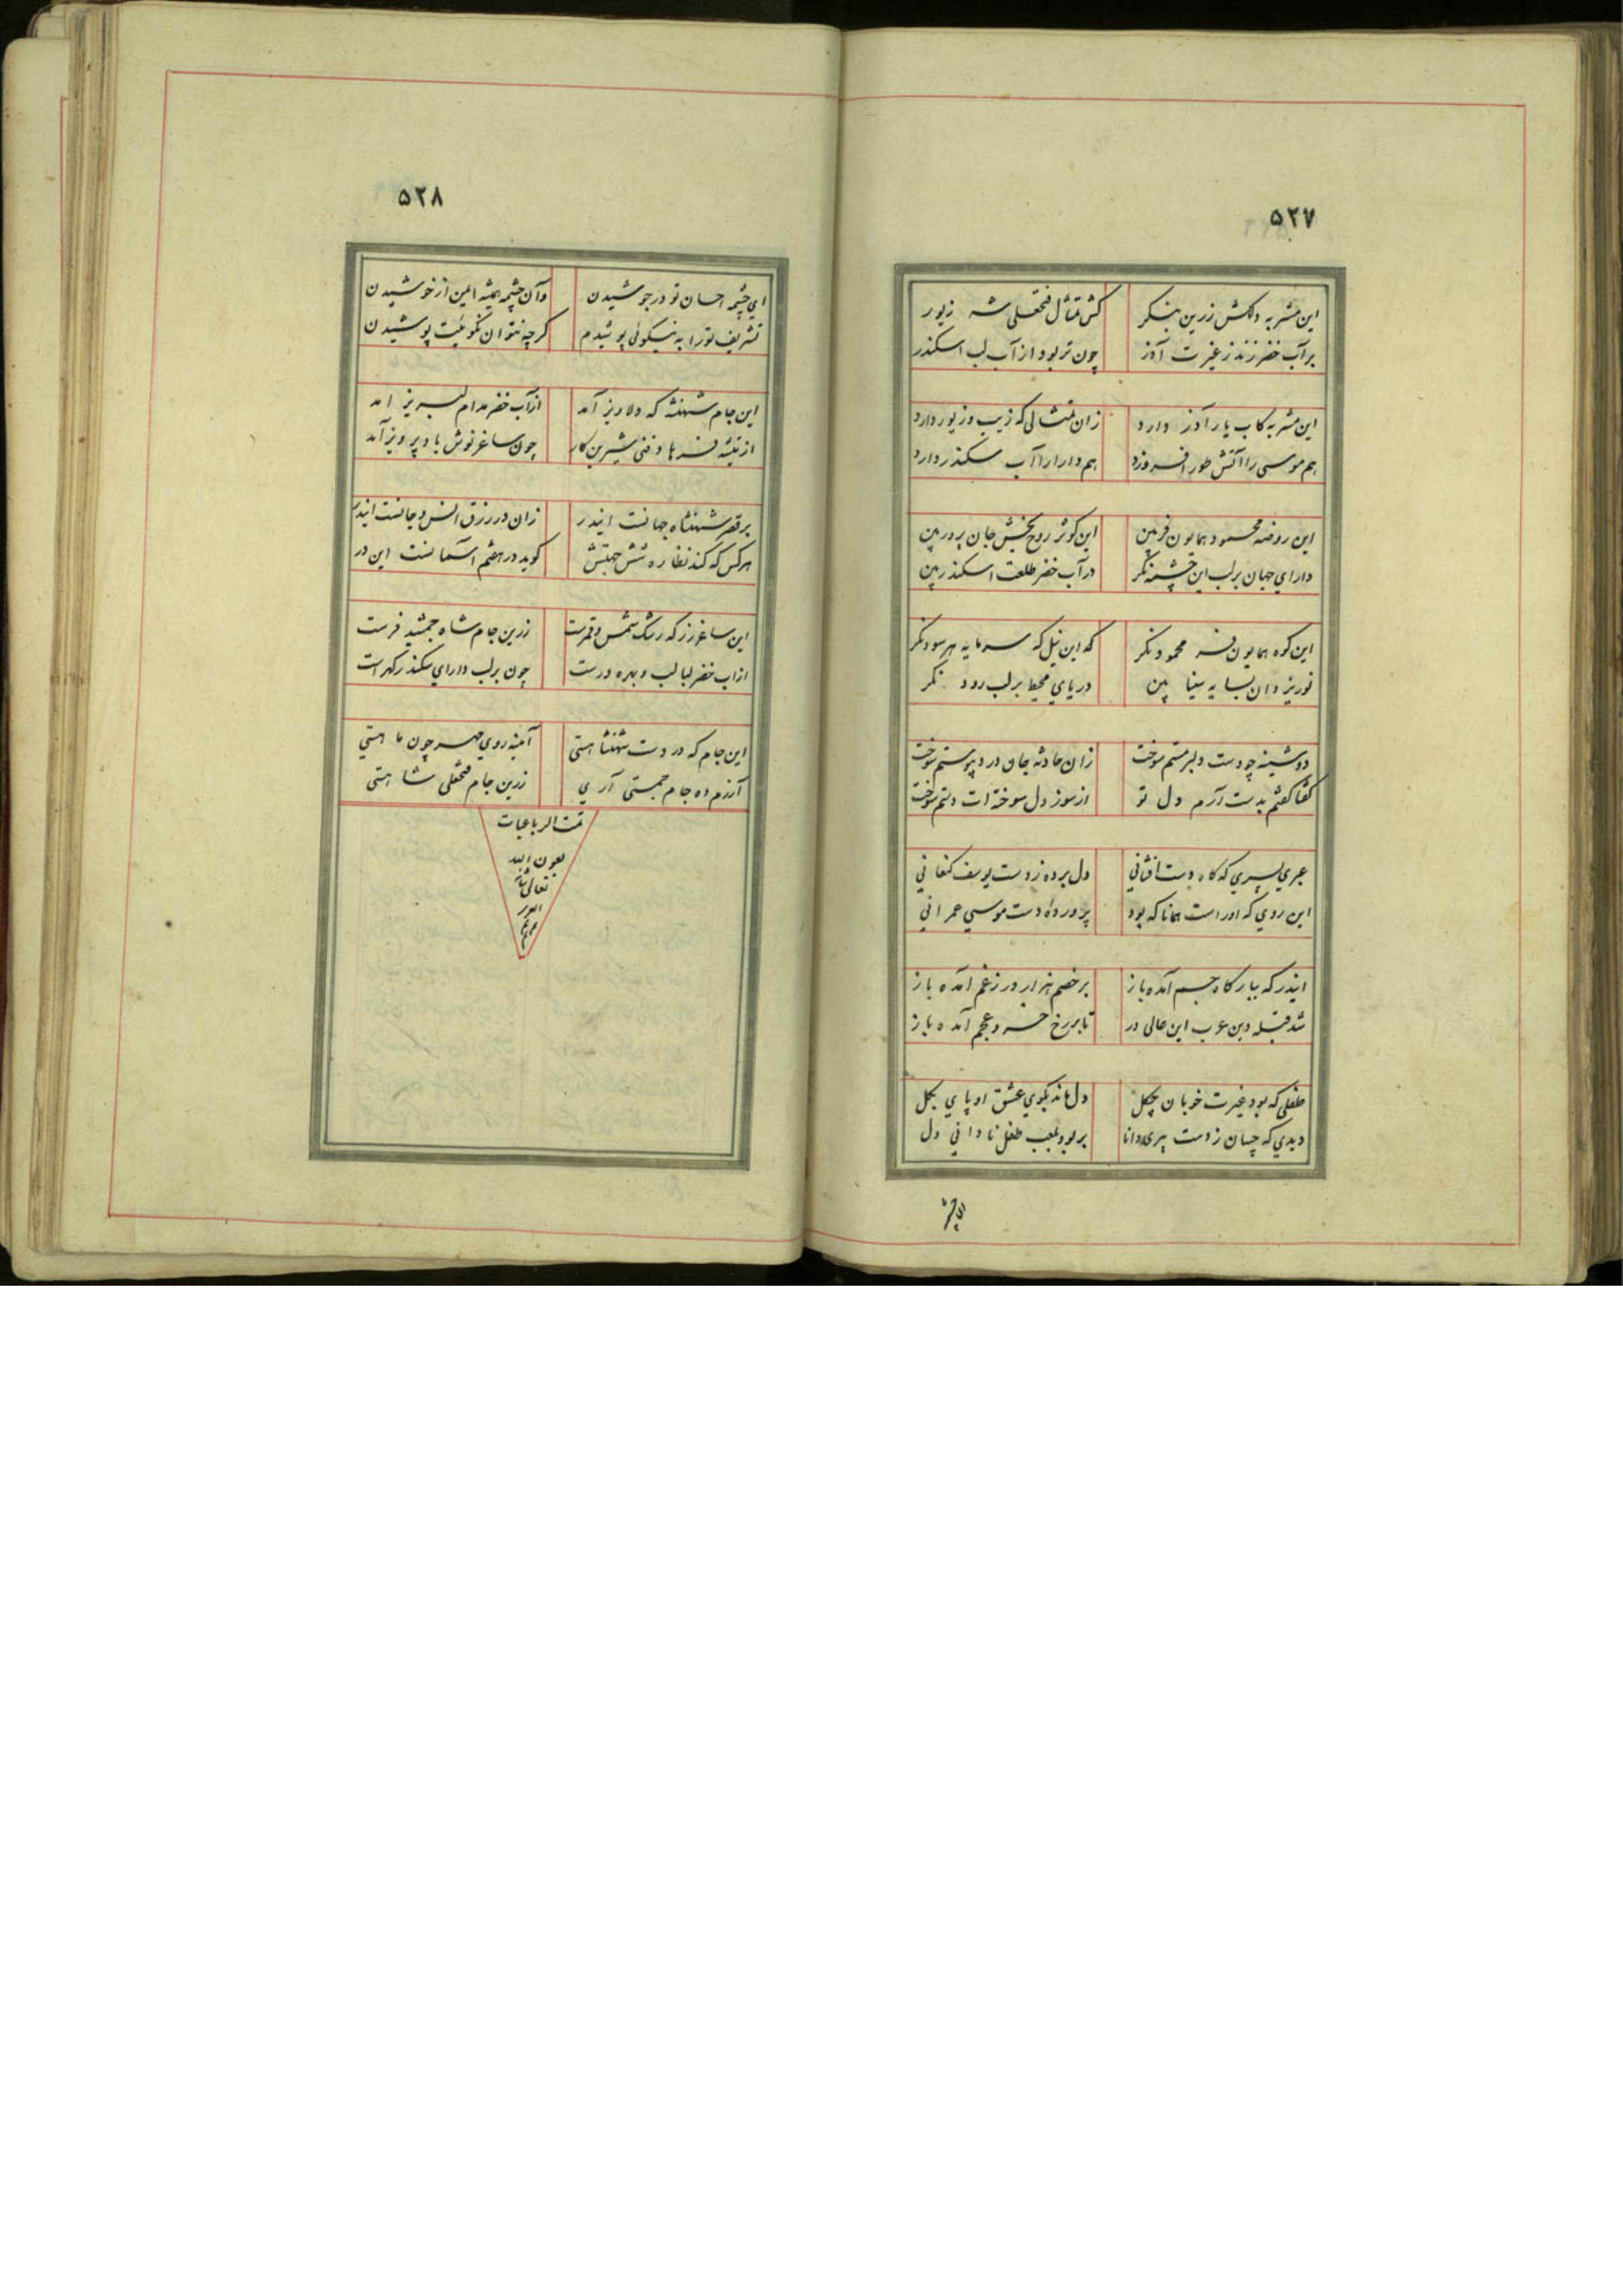 ۵۲۷
این مشربه دلکش زرین بنکر
کش تمثال فتحعلی شه زیور
برآب خضر زند ز غیرت آذر
چون تر بود از آب لب اسکندر
این مشربه کاب یار آذر دارد
زان تمثالی که زیب و زیور دارد
هم موسی را آتش طور افروزد
هم دارا را آب سکندر دارد
این روضه محمود همایون فر بین
این کوثر روح بخش جان پرور بین
دارای جهان بر لب این چشمه نکر
در آب خضر طلعت اسکندر بین
این کوه همایون فر محمود نکر
که این نیل که سرمایه هر سود نکر
نور یزدان بسایه سینا بین
دریای محیط بر لب رود نکر
دوشینه چو دست دلبر مستم سوخت
زان حادثه جان درد پیوستم سوخت
کفتا کفتم بدست آرم دل تو
از سوز دل سوخته ات دستم سوخت
عبری پسری که کاه دست افشانی
دل برده ز دست یوسف کنعانی
این روی که اوراست همانا که بود
پرورده دست موسی عمرانی
ایندر که ببارکاه جم آمده باز
بر خصم هزار در ز غم آمده باز
شد قبله دین عرب این عالی در
تا بر رخ خسرو عجم آمده باز
طفلی که بود غیرت خوبان چکل
دل ماند بکوی عشق او پای بکل
دیدی که چسان ز دست پیری دانا
بربود بلعب طفل نادانی دل
۵۲۸
ای چشمه احسان تو در جوشیدن
وآن چشمه همیشه ایمن از خوشیدن
تشریف تو را به نیکوئی پوشیدم
کرچه نتوان نکوئیت پوشیدن
این جام شهنشه که دلاویز آمد
از آب خضر مدام لبریز امد
از تیشه فرهاد فنی شیرین کار
چون ساغر نوش باد پرویز آمد
بر قصر شهنشاه جهانست ایندر
زان در رزق انس و جانست ایندر
هر کس که کند نظاره شش جهتش
کوید در هشتم آسمانست این در
این ساغر زر که رشک شمس و قمرست
زرین جام شاه جمشید فرست
از اب خضر لبالب و بهره ورست
چون بر لب دارای سکندر کهر است
این جام که در دست شهنشاهستی
آینه روی مهر چون ماهستی
آرزم ده جام جمستی آری
زرین جام فتحعلی شاهستی
تمت الرباعیات
بعون الله
تعالی